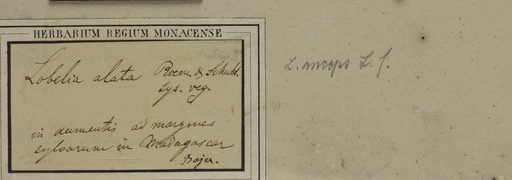 HERBARIUM REGIUM MONACENSE
Lobelia alata Roem. & Schult.
sys. veg.
in dumentis ad margines
sylvarum in Madagascar
Bojer.
L. anceps L. f.